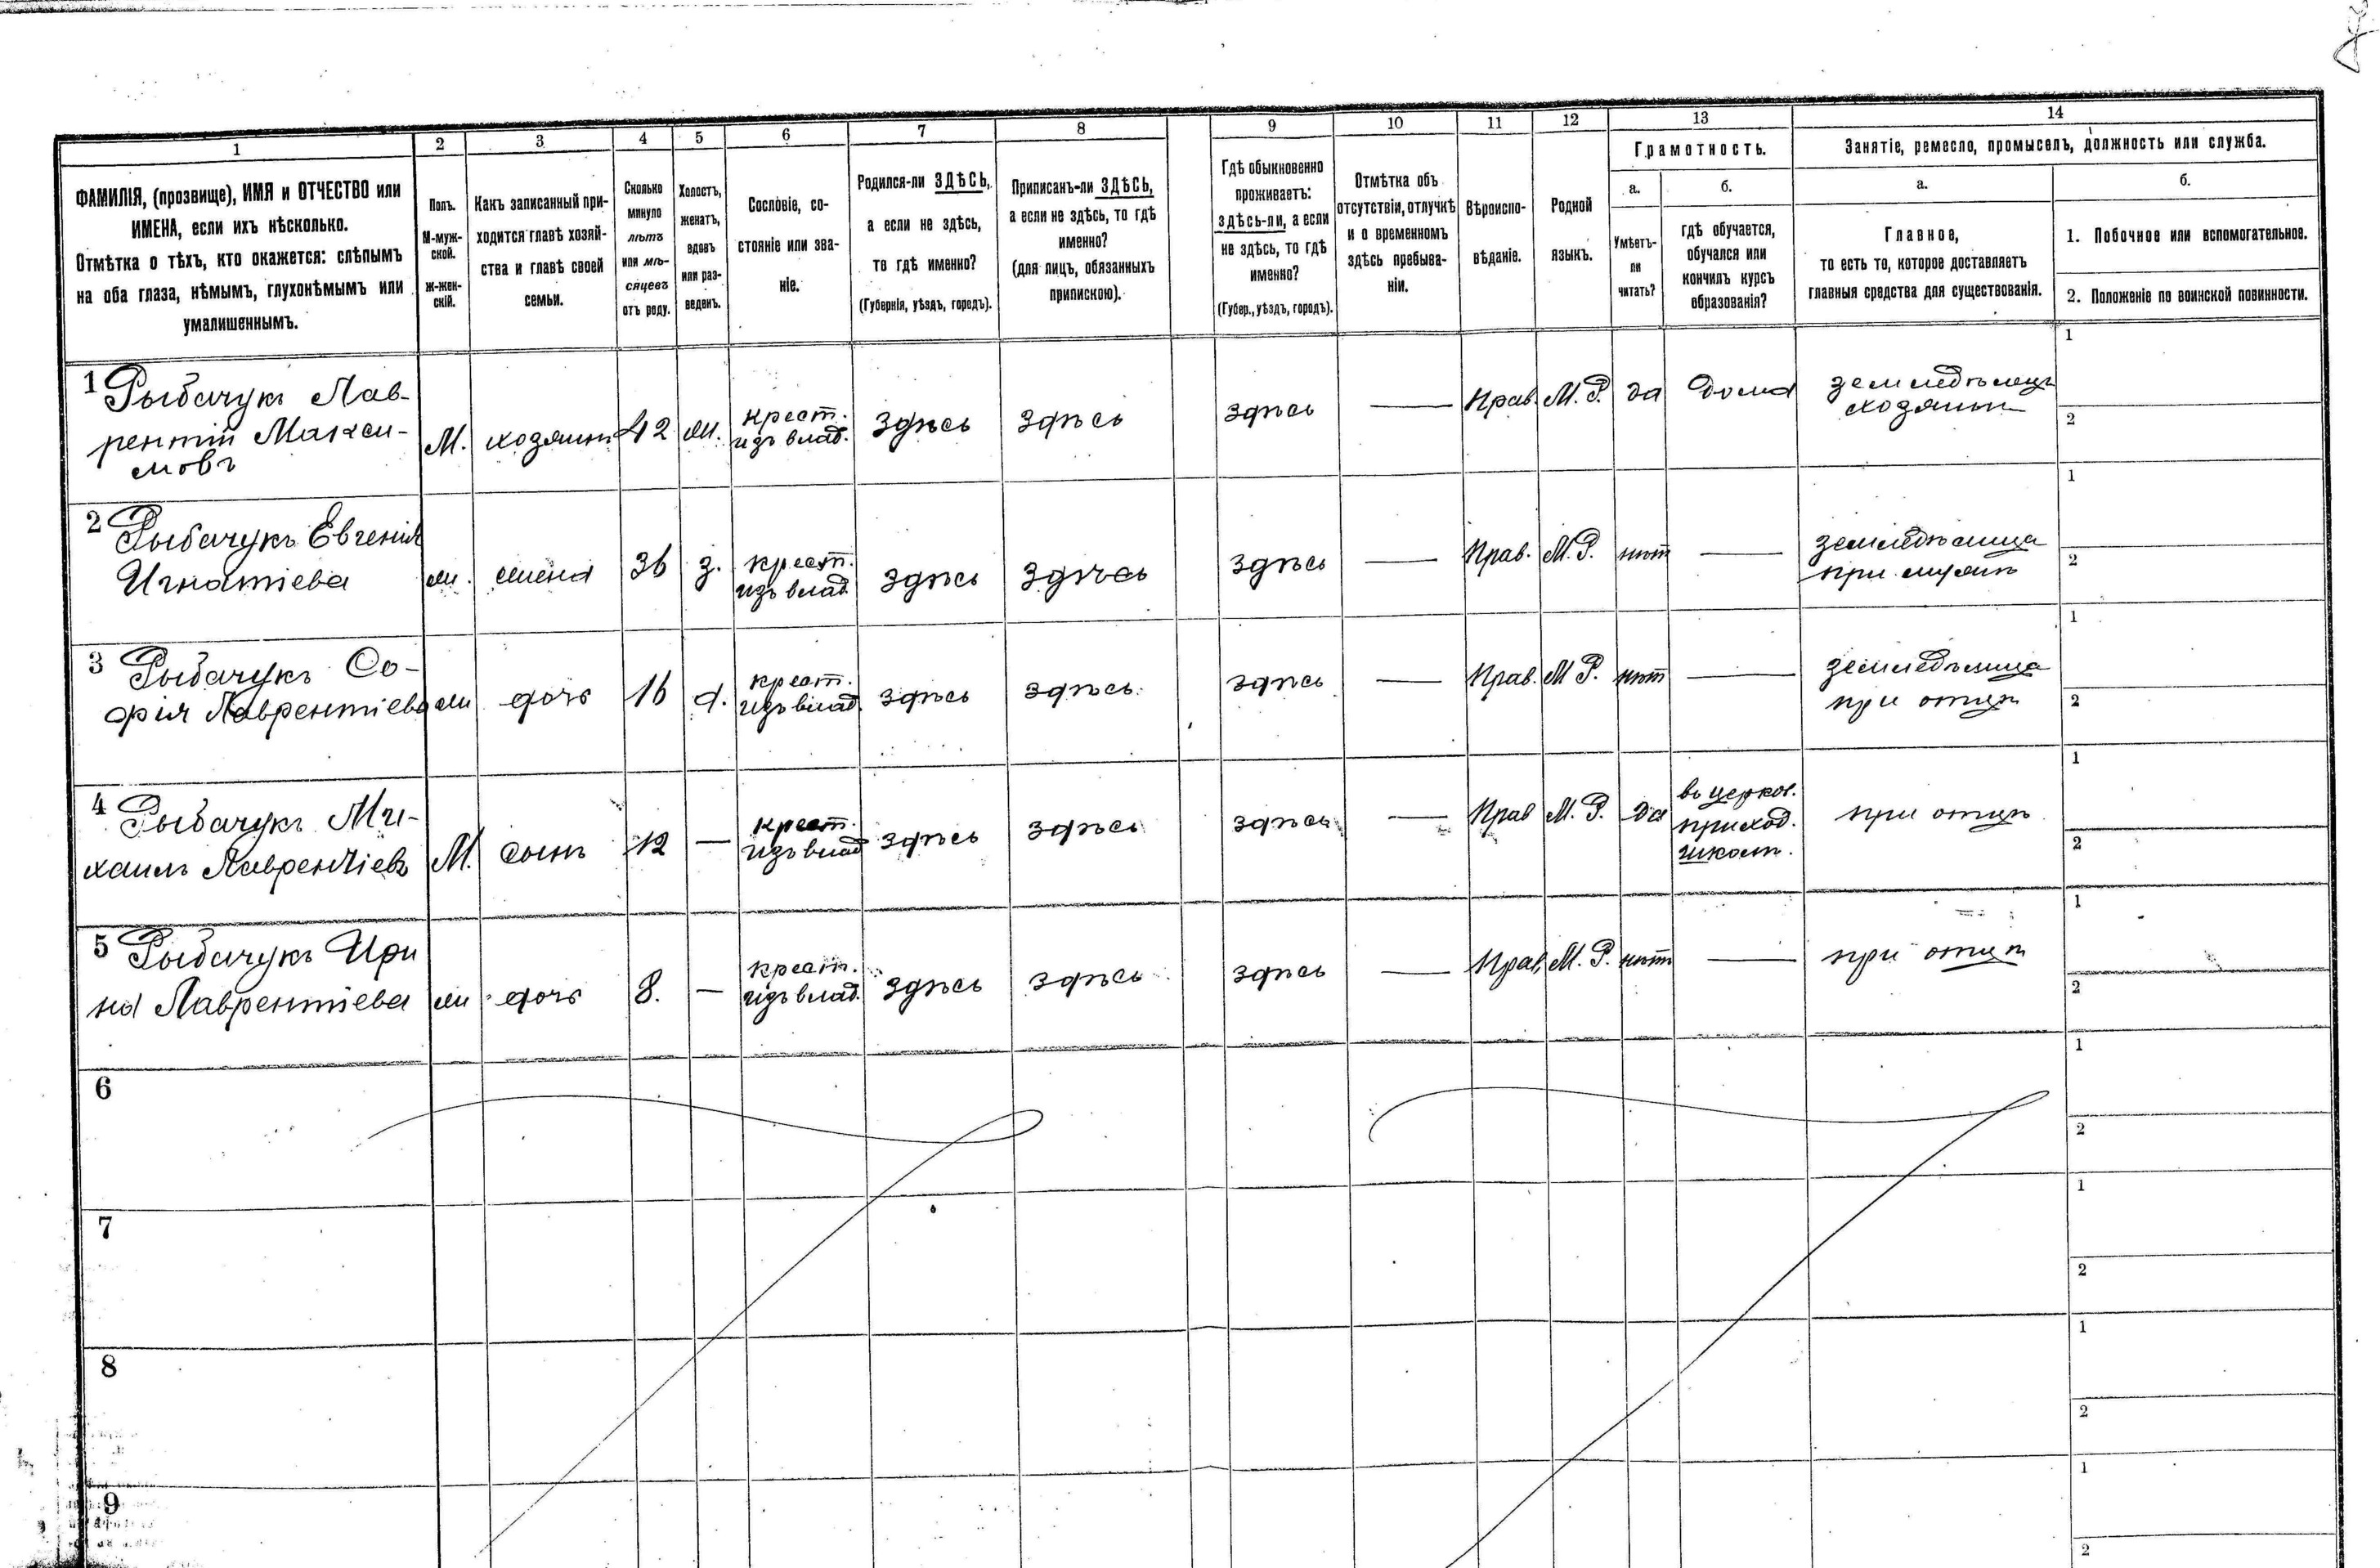 1 2 3 4 5 6 7 8 9 10 11 12 13 14
ФАМИЛІЯ, (прозвище), ИМЯ и ОТЧЕСТВО или
ИМЕНА, если ихъ нѣсколько.
Отмѣтка о тѣхъ, кто окажется: слѣпымъ
на оба глаза, нѣмымъ, глухонѣмымъ или
умалишеннымъ.
Полъ.
М-муж-
ской.
ж-жен-
скій.
Какъ записанный при-
ходится главѣ хозяй-
ства и главѣ своей
семьи.
Сколько
минуло
лѣтъ
или мѣ-
сяцевъ
отъ роду.
Холостъ,
женатъ,
вдовъ
или раз-
веденъ.
Сословіе, со-
стояніе или зва-
ніе.
Родился-ли ЗДѢСЬ,
а если не здѣсь,
то гдѣ именно?
(Губернія, уѣздъ, городъ).
Приписанъ-ли ЗДѢСЬ,
а если не здѣсь, то гдѣ
именно?
(для лицъ, обязанныхъ
припискою).
Гдѣ обыкновенно
проживаетъ:
здѣсь-ли, а если
не здѣсь, то гдѣ
именно?
(Губер., уѣздъ, городъ).
Отмѣтка объ
отсутствіи, отлучкѣ
и о временномъ
здѣсь пребыва-
ніи.
Вѣроиспо-
вѣданіе.
Родной
языкъ.
Грамотность.
а.
Умѣетъ-
ли
читать?
б.
гдѣ обучается,
обучался или
кончилъ курсъ
образованія?
Занятіе, ремесло, промыселъ, должность или служба.
а.
Главное,
то есть то, которое доставляетъ
главныя средства для существованія.
б.
1. Побочное или вспомогательное.
2. Положеніе по воинской повинности.
1 Рыбачукъ Лав-
рентій Макси-
мовъ
М. хозяинъ 42 ж. крест.
изъ влад.
здѣсь здѣсь здѣсь — Прав. М.Р. да дома земледѣлецъ
хозяинъ
1
2
2 Рыбачукъ Евгенія
Игнатіева
ж. жена 36 з. крест.
изъ влад.
здѣсь здѣсь здѣсь — Прав. М.Р. нѣт — земледѣлица
при мужѣ
1
2
3 Рыбачукъ Со-
фія Лаврентіева
ж дочь 16 д. крест.
изъ влад.
здѣсь здѣсь здѣсь — Прав. М Р. нѣт — земледѣлица
при отцѣ
1
2
4 Рыбачукъ Ми-
хаилъ Лаврентіевъ
М. сынъ 12 — крест.
изъ влад
здѣсь здѣсь здѣсь — Прав М.Р. да въ церков.
приход.
школѣ.
при отцѣ
1
2
5 Рыбачукъ Ири
на Лаврентіева
ж дочь 8. — крест.
изъ влад.
здѣсь здѣсь здѣсь — Прав. М.Р. нѣт — при отцѣ
1
2
6
1
2
7
1
2
8
1
2
9
1
2